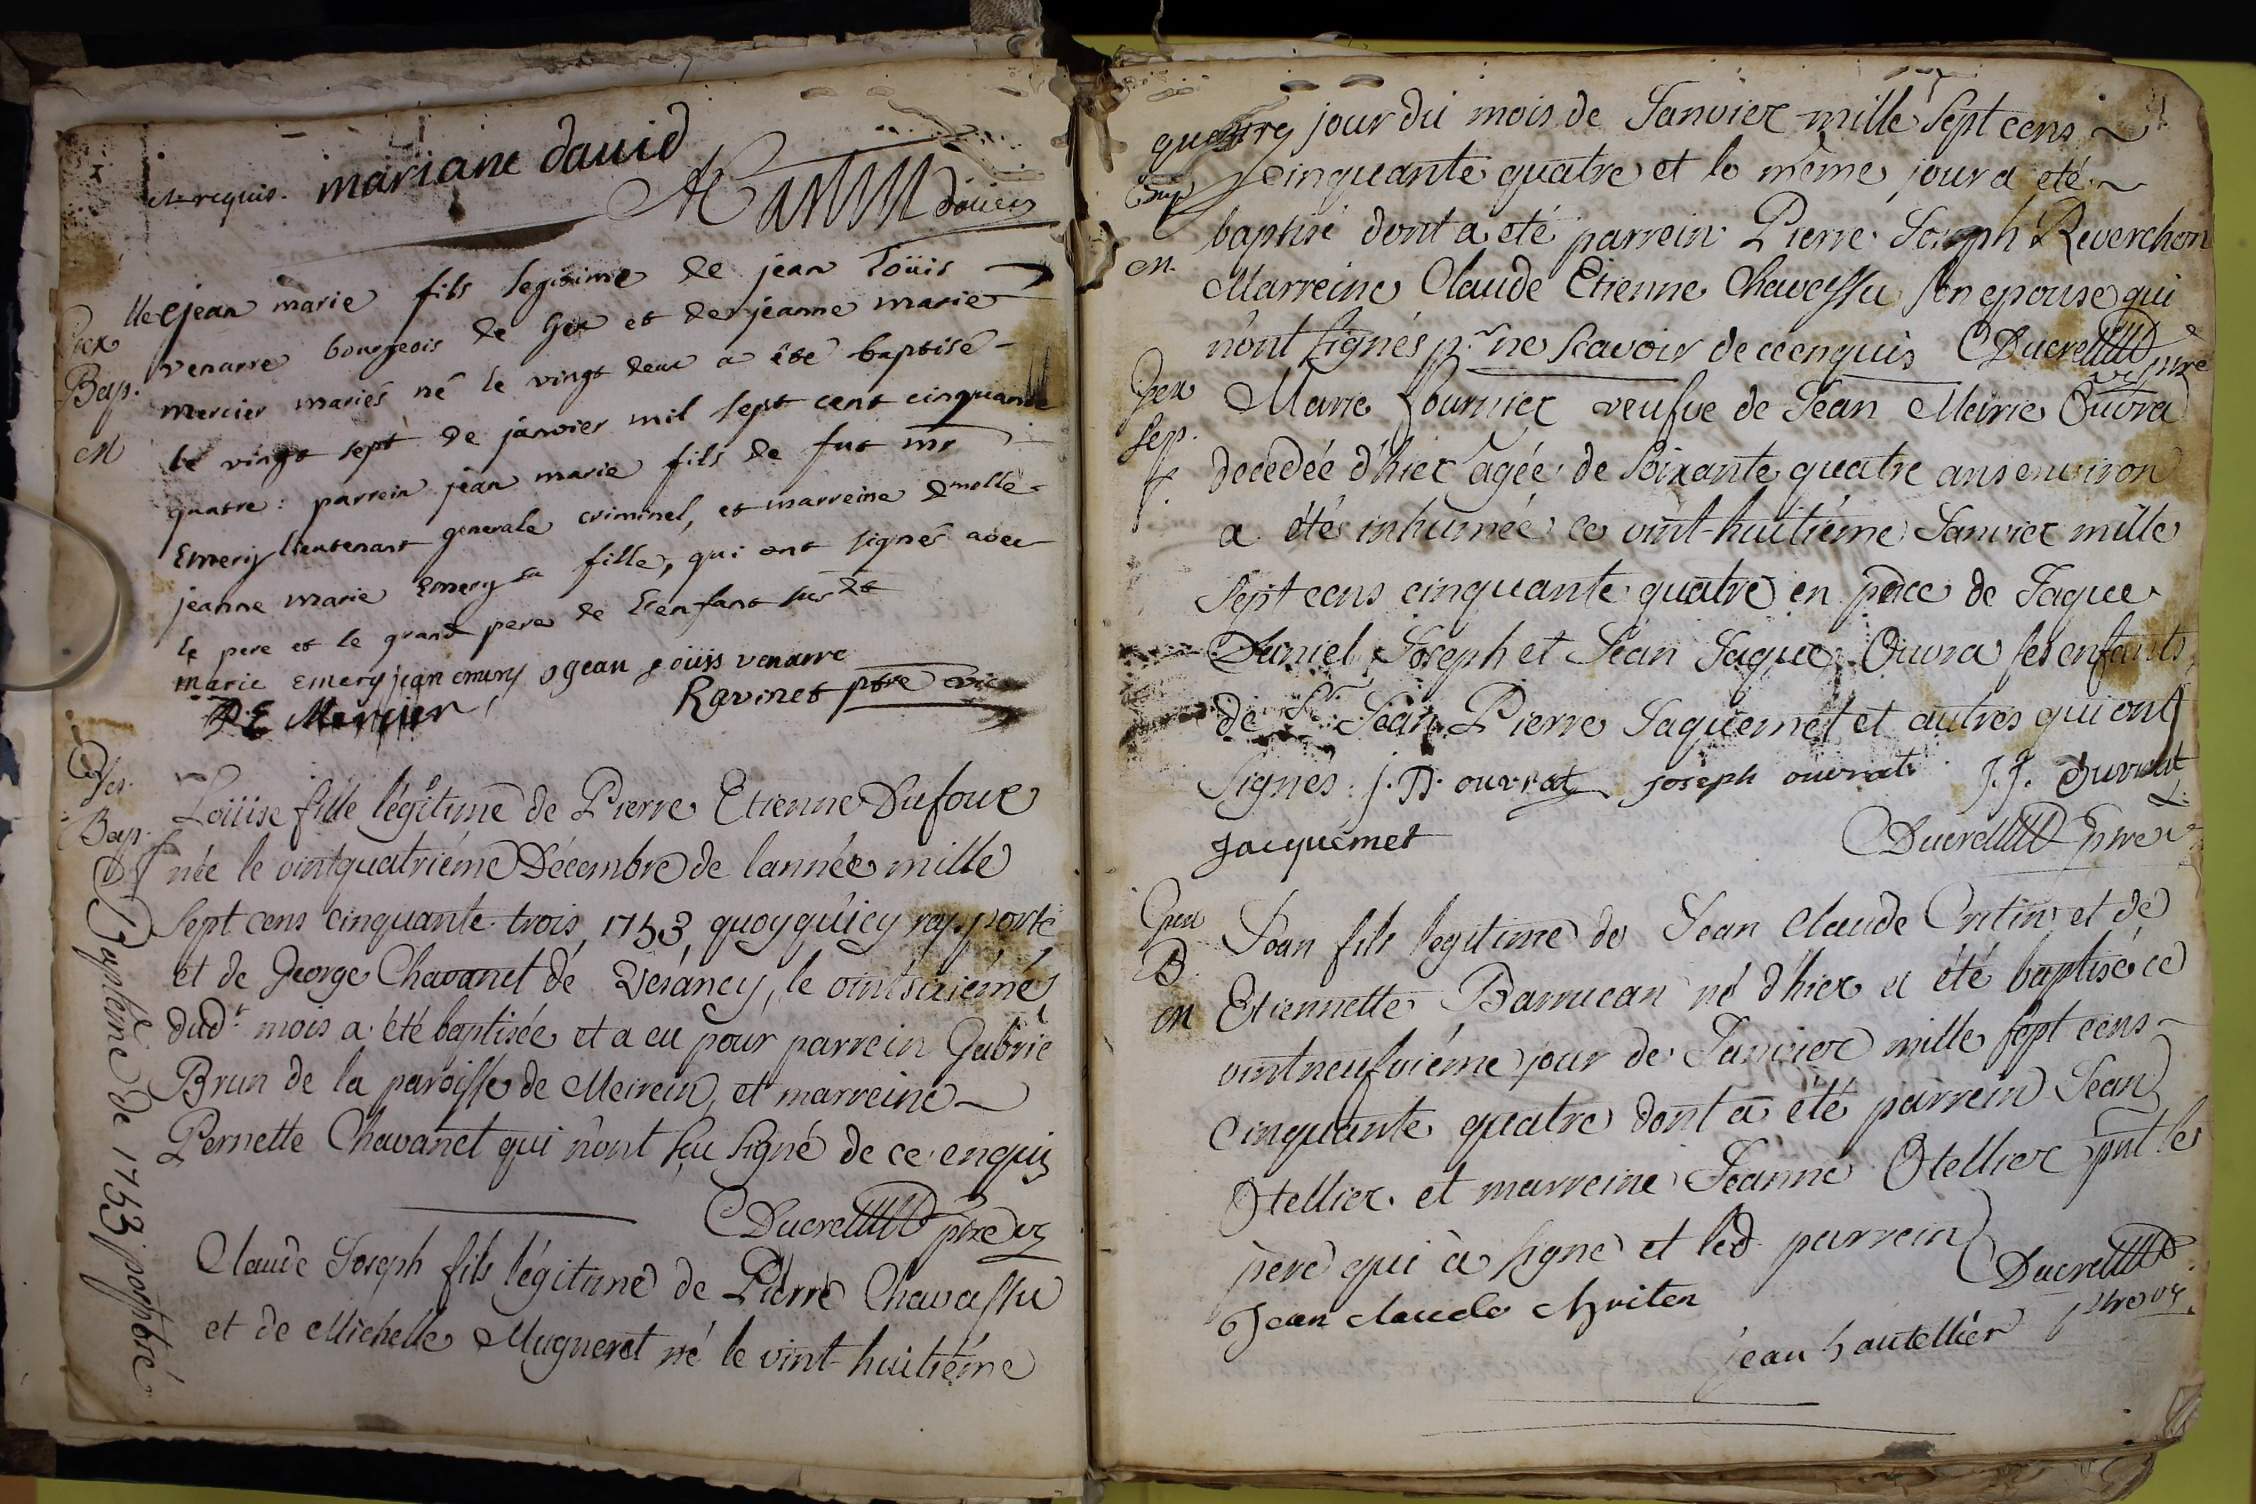 et requis. mariane david
douier
jean marie fils legitime de jean loüis
venarre bourgeois de Gex et de jeanne marie
mercier mariés né le vingt deux a été baptisé
le vingt sept de janvier mil sept cent cinquante
quatre : parrein jean marie fils de fut mr
Emery lieutenant generale criminel, et marreine dmoile
jeanne marie Emery sa fille, qui ont signés avec
le pere et le grand pere de l'enfant susdt
marie emery jean emery jean loüis venarre
Mercier Ravinet ptre vic
Gex
Bap.
M
Loüise fille légitime de Pierre Etienne Dufour
née le vintquatriéme Décembre de lannée mille
Sept cens cinquante trois 1753 quoyqu'icy rapporté
et de George Chavanet de Vesancy, le vintsixiéme
dudt mois a été baptisée et a eu pour parrein Gabrie
Brun de la paroisse de Meirein, et marreine
Pernette Chavanet qui n'ont sçu signé de ce enquis
Ducret ptre v
Gex.
Bap.
f
Baptême de 1753 postposé
Claude Joseph fils légitime de Pierre Chavassu
et de Michelle Mugneret né le vint-huitiéme
quatre jour du mois de Janvier mille Sept cens
cinquante quatre et le même jour a été
baptisé dont a été parrein Pierre Joseph Reverchon
Marreine Claude Etienne Chavassu son epouse qui
n'ont signés pr ne scavoir de ce enquis Ducret ptre v
Bap
M.
Gex
Sep.
f.
Marie Fournier veufve de Jean Meirie Ouvra
decedée d'hier agée de Soixante quatre ans environ
a étés inhumée ce vint-huitiéme Janvier mille
Sept cens cinquante quatre en pnce de Jaque
Daniel, Joseph et Jean Jaque Ouvra ses enfants,
de Sr. Jean Pierre Jaquemet et autres qui ont
Signés. J. D. ouvrat joseph ouvrat J. J. Ouvrat
Jacquemet Ducret ptre v
Gex
B.
M
Jean fils legitime de Jean Claude Critin et de
Etiennette Barrucan né d'hier a été baptisé ce
vintneufviéme jour de Janvier mille sept cens
cinquante quatre dont a été parrein Jean
Otellier et marreine Jeanne Otellier pnt le
père qui à signé et led parrein
Ducret
ptre v
Jean claude chriten
jean hautellier